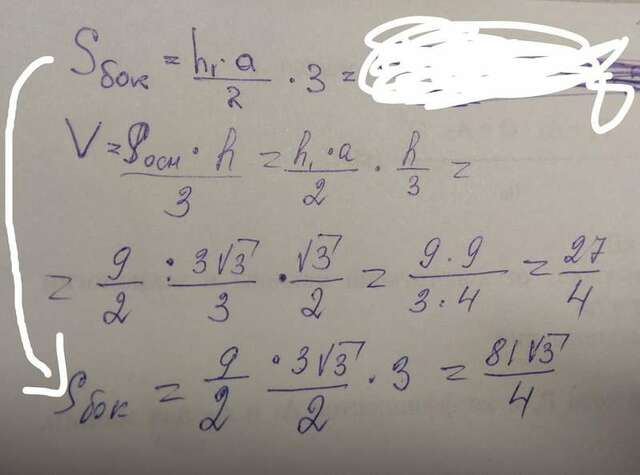 Sбок = h₁·a/2 · 3 =
V = Sосн · h/3 = h₁·a/2 · h/3 =
= 9/2 · 3√3/3 · √3/2 = 9·9/3·4 = 27/4
Sбок = 9/2 · 3√3/2 · 3 = 81√3/4